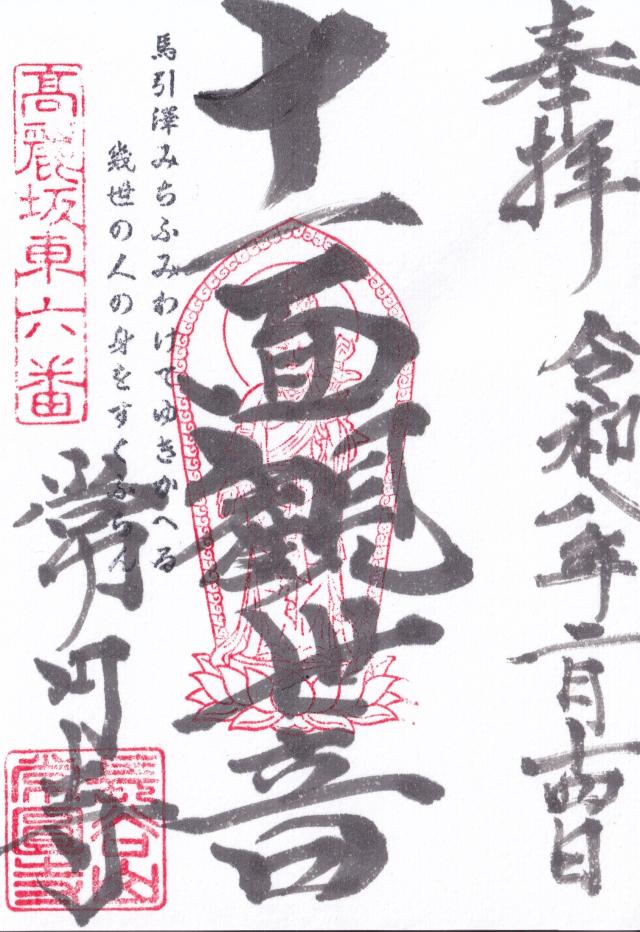 奉拝
令和二年二月十四日
十一面観世音
馬引澤みちふみわけてゆきかへる
幾世の人の身をすくふらん
高麗坂東六番
常円寺